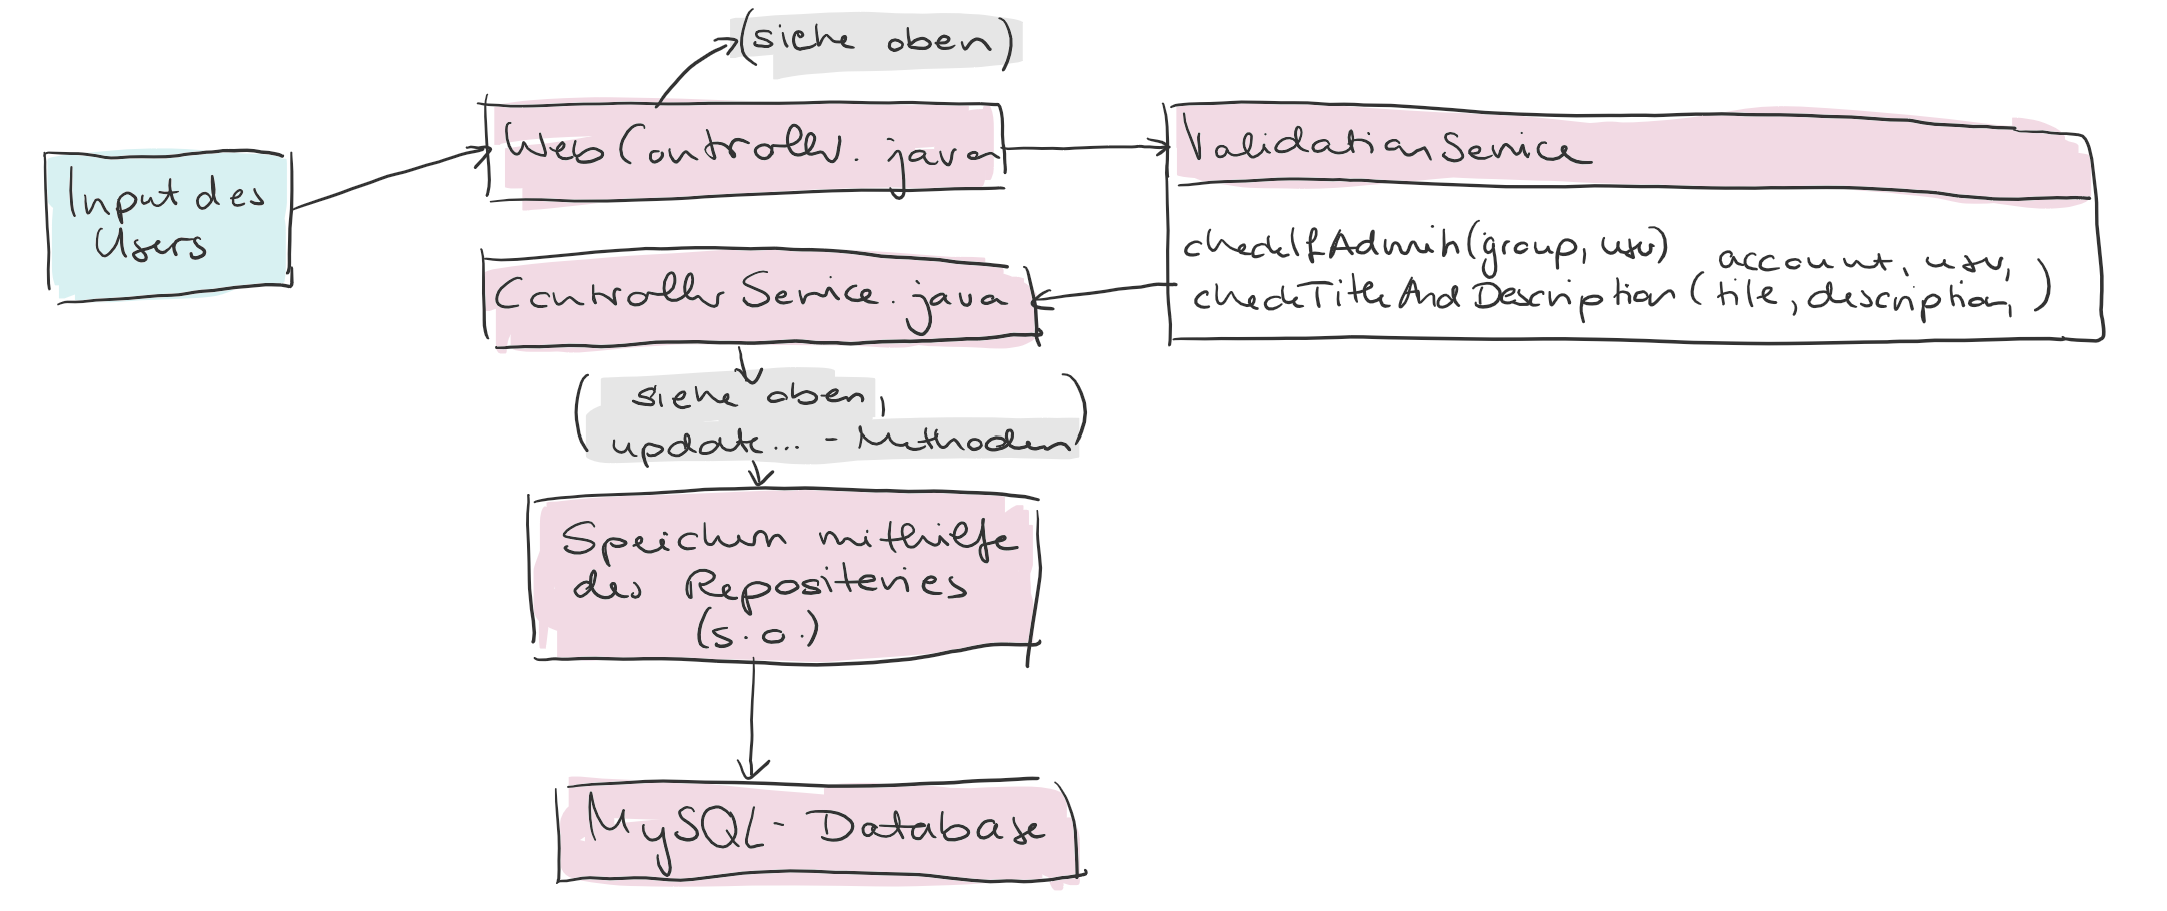 (siehe oben)
Input des
Users
WebController.java
ValidationService
checkIfAdmin(group, user)
account, user,
checkTitleAndDescription (title, description, )
ControllerService.java
(siehe oben,
update... - Methoden)
Speichern mithilfe
des Repositories
(s.o.)
MySQL-Database